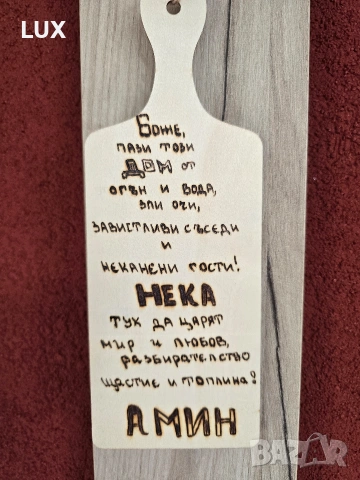 LUX
Боже,
пази този
ДОМ от
огън и вода,
зли очи,
завистливи съседи
и
неканени гости!
НЕКА
тук да царят
мир и любов,
разбирателство
щастие и топлина!
АМИН
BAZAR